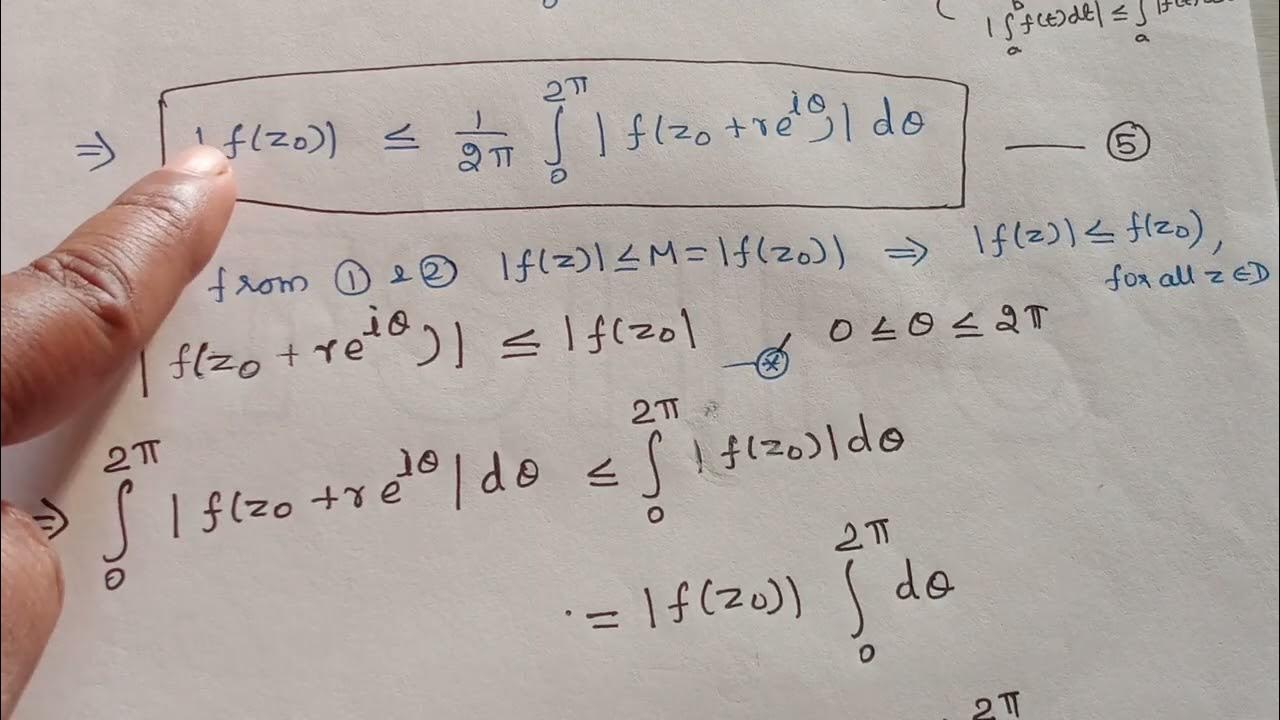 |∫ₐᵇ f(t)dt| ≤ ∫ₐ
⇒ |f(z₀)| ≤ 1/2π ∫₀^2π |f(z₀ + re^iθ)| dθ — ⑤
from ① & ② |f(z)| ≤ M = |f(z₀)| ⇒ |f(z)| ≤ f(z₀),
for all z ∈ D
|f(z₀ + re^iθ)| ≤ |f(z₀| —⊛ 0 ≤ θ ≤ 2π
⇒ ∫₀^2π |f(z₀ + re^iθ| dθ ≤ ∫₀^2π |f(z₀)| dθ
= |f(z₀)) ∫₀^2π dθ
2π